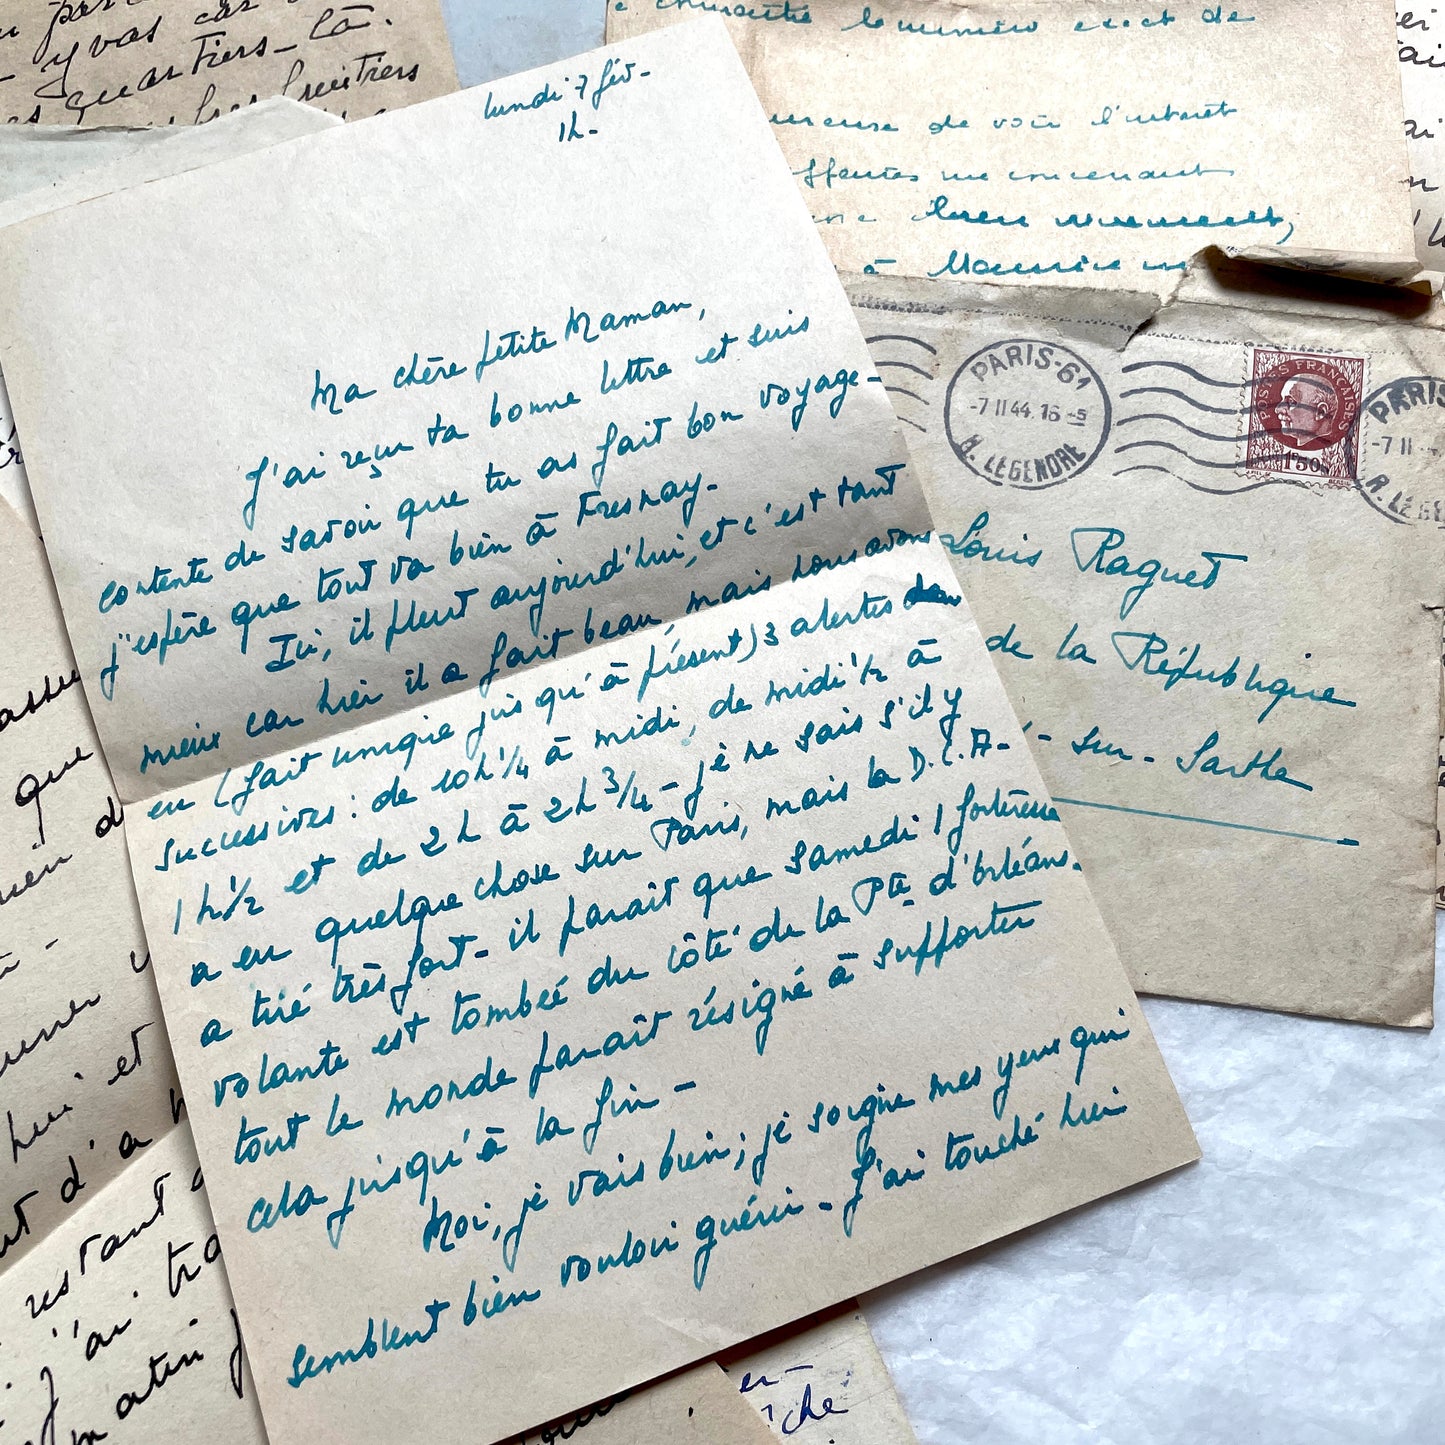 lundi 7 fév-
1h-
Ma chère petite Maman,
J'ai reçu ta bonne lettre et suis
contente de savoir que tu as fait bon voyage-
j'espère que tout va bien à Fresnay.
Ici, il pleut aujourd'hui, et c'est tant
mieux car hier il a fait beau, mais nous avons
eu (fait unique jusqu'à présent) 3 alertes
successives: de 10h 1/4 à midi, de midi 1/2 à
1h 1/2 et de 2h à 2h 3/4 - je ne sais s'il y
a eu quelque chose sur Paris, mais la D.C.A.
a tiré très fort- il paraît que samedi 1 forteresse
volante est tombée du côté de la Pte d'Orléans.
tout le monde paraît résigné à supporter
cela jusqu'à la fin -
Moi, je vais bien; je soigne mes yeux qui
semblent bien vouloir guérir - J'ai touché hier
y vas car
quartiers-là.
fruitiers
le numéro exact de
de voir l'intérêt
me concernant
à Maurice
PARIS-61
-7 II 44. 16 -5
R. LEGENDRE
POSTES FRANÇAISES
1F50
PARIS
-7 II
R. LEGE
Louis Raguet
de la République
- sur - Sarthe
que
et
restant
j'ai
ché